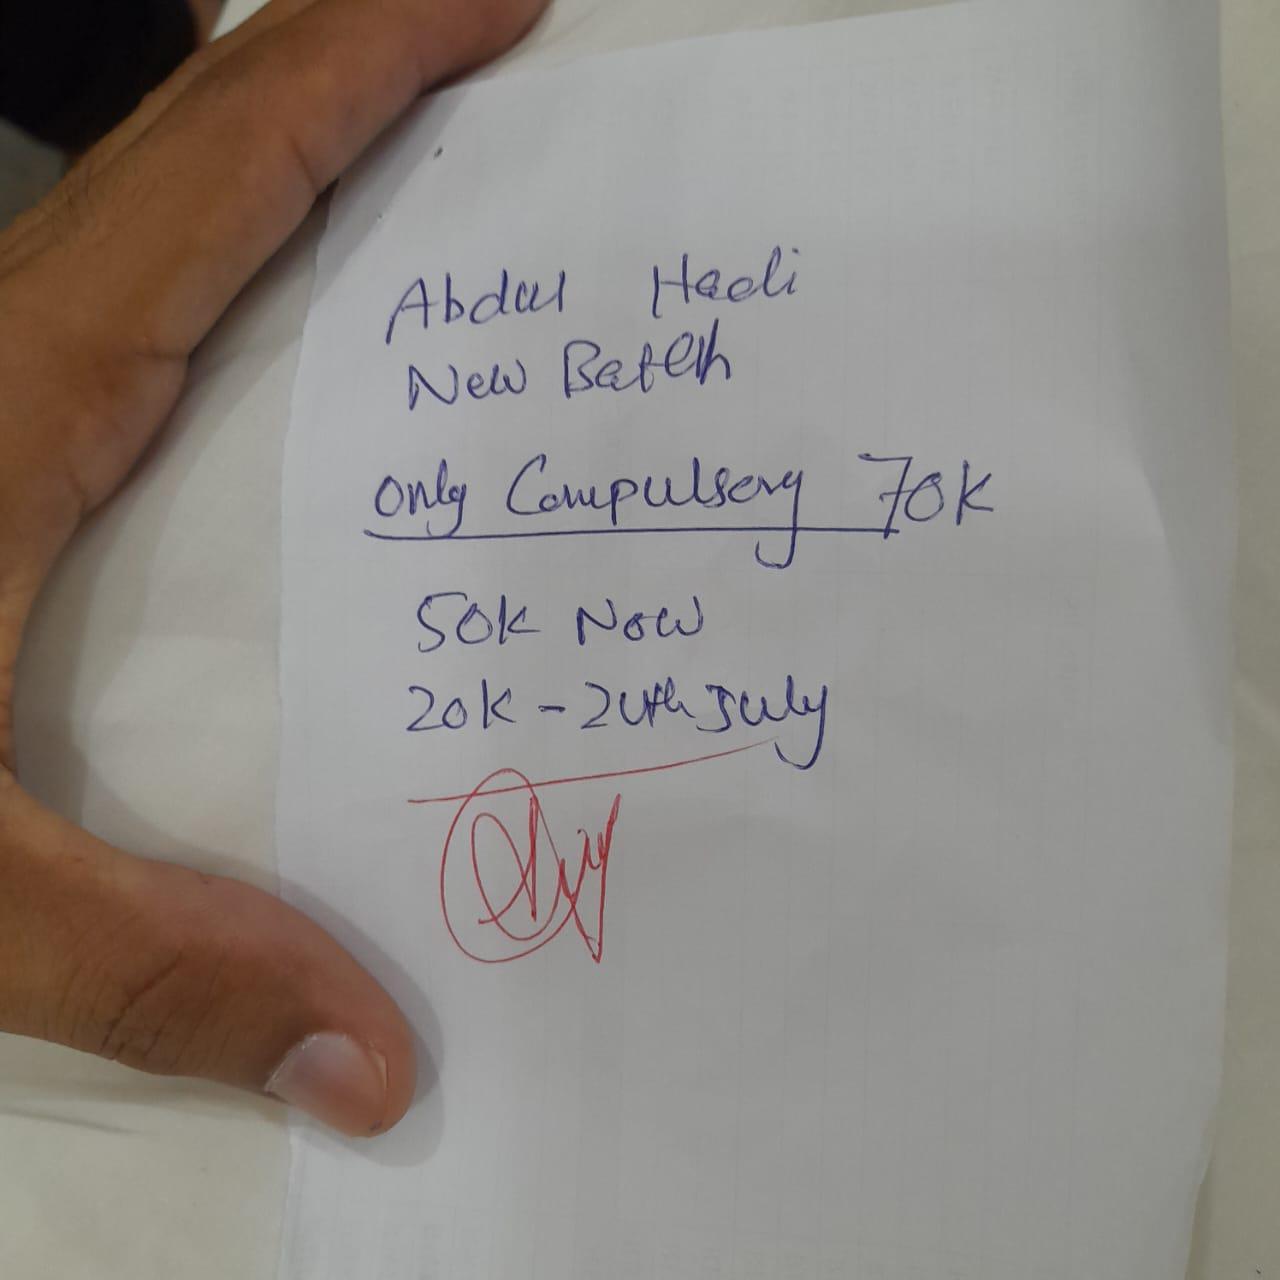 Abdul Hadi
New Batch
only Compulsory 70K
50K Now
20K - 24th July